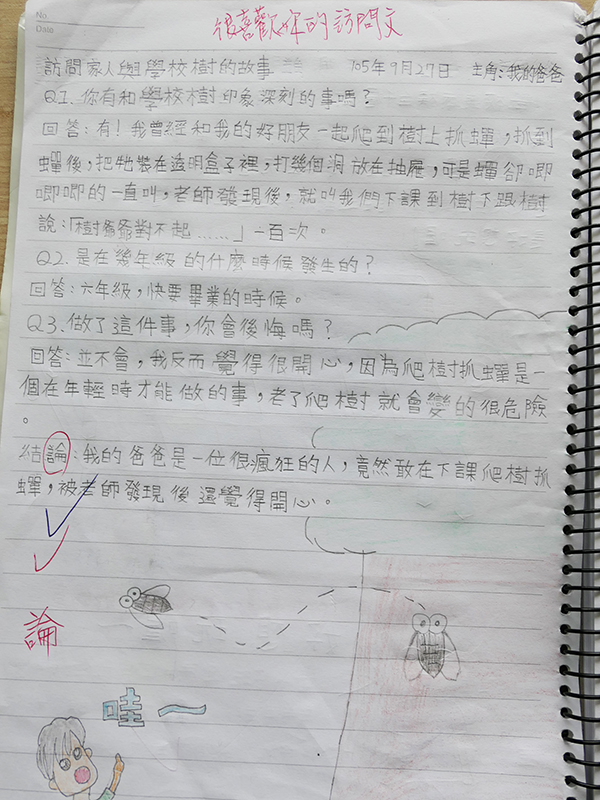 很喜歡妳的訪問文
No.
Date
訪問家人與學校樹的故事 105年9月27日 主角:我的爸爸
Q1.你有和學校樹印象深刻的事嗎?
回答:有!我曾經和我的好朋友一起爬到樹上抓蟬,抓到
蟬後,把牠裝在透明盒子裡,打幾個洞放在抽屜,可是蟬卻唧
唧唧唧的一直叫,老師發現後,就叫我們下課到樹下跟樹
說:「樹爺爺對不起……」一百次。
Q2.是在幾年級的什麼時候發生的?
回答:六年級,快要畢業的時候。
Q3.做了這件事,你會後悔嗎?
回答:並不會,我反而覺得很開心,因為爬樹抓蟬是一
個在年輕時才能做的事,老了爬樹就會變的很危險
。
結論:我的爸爸是一位很瘋狂的人,竟然敢在下課爬樹抓
蟬,被老師發現後還覺得開心。
論
哇~